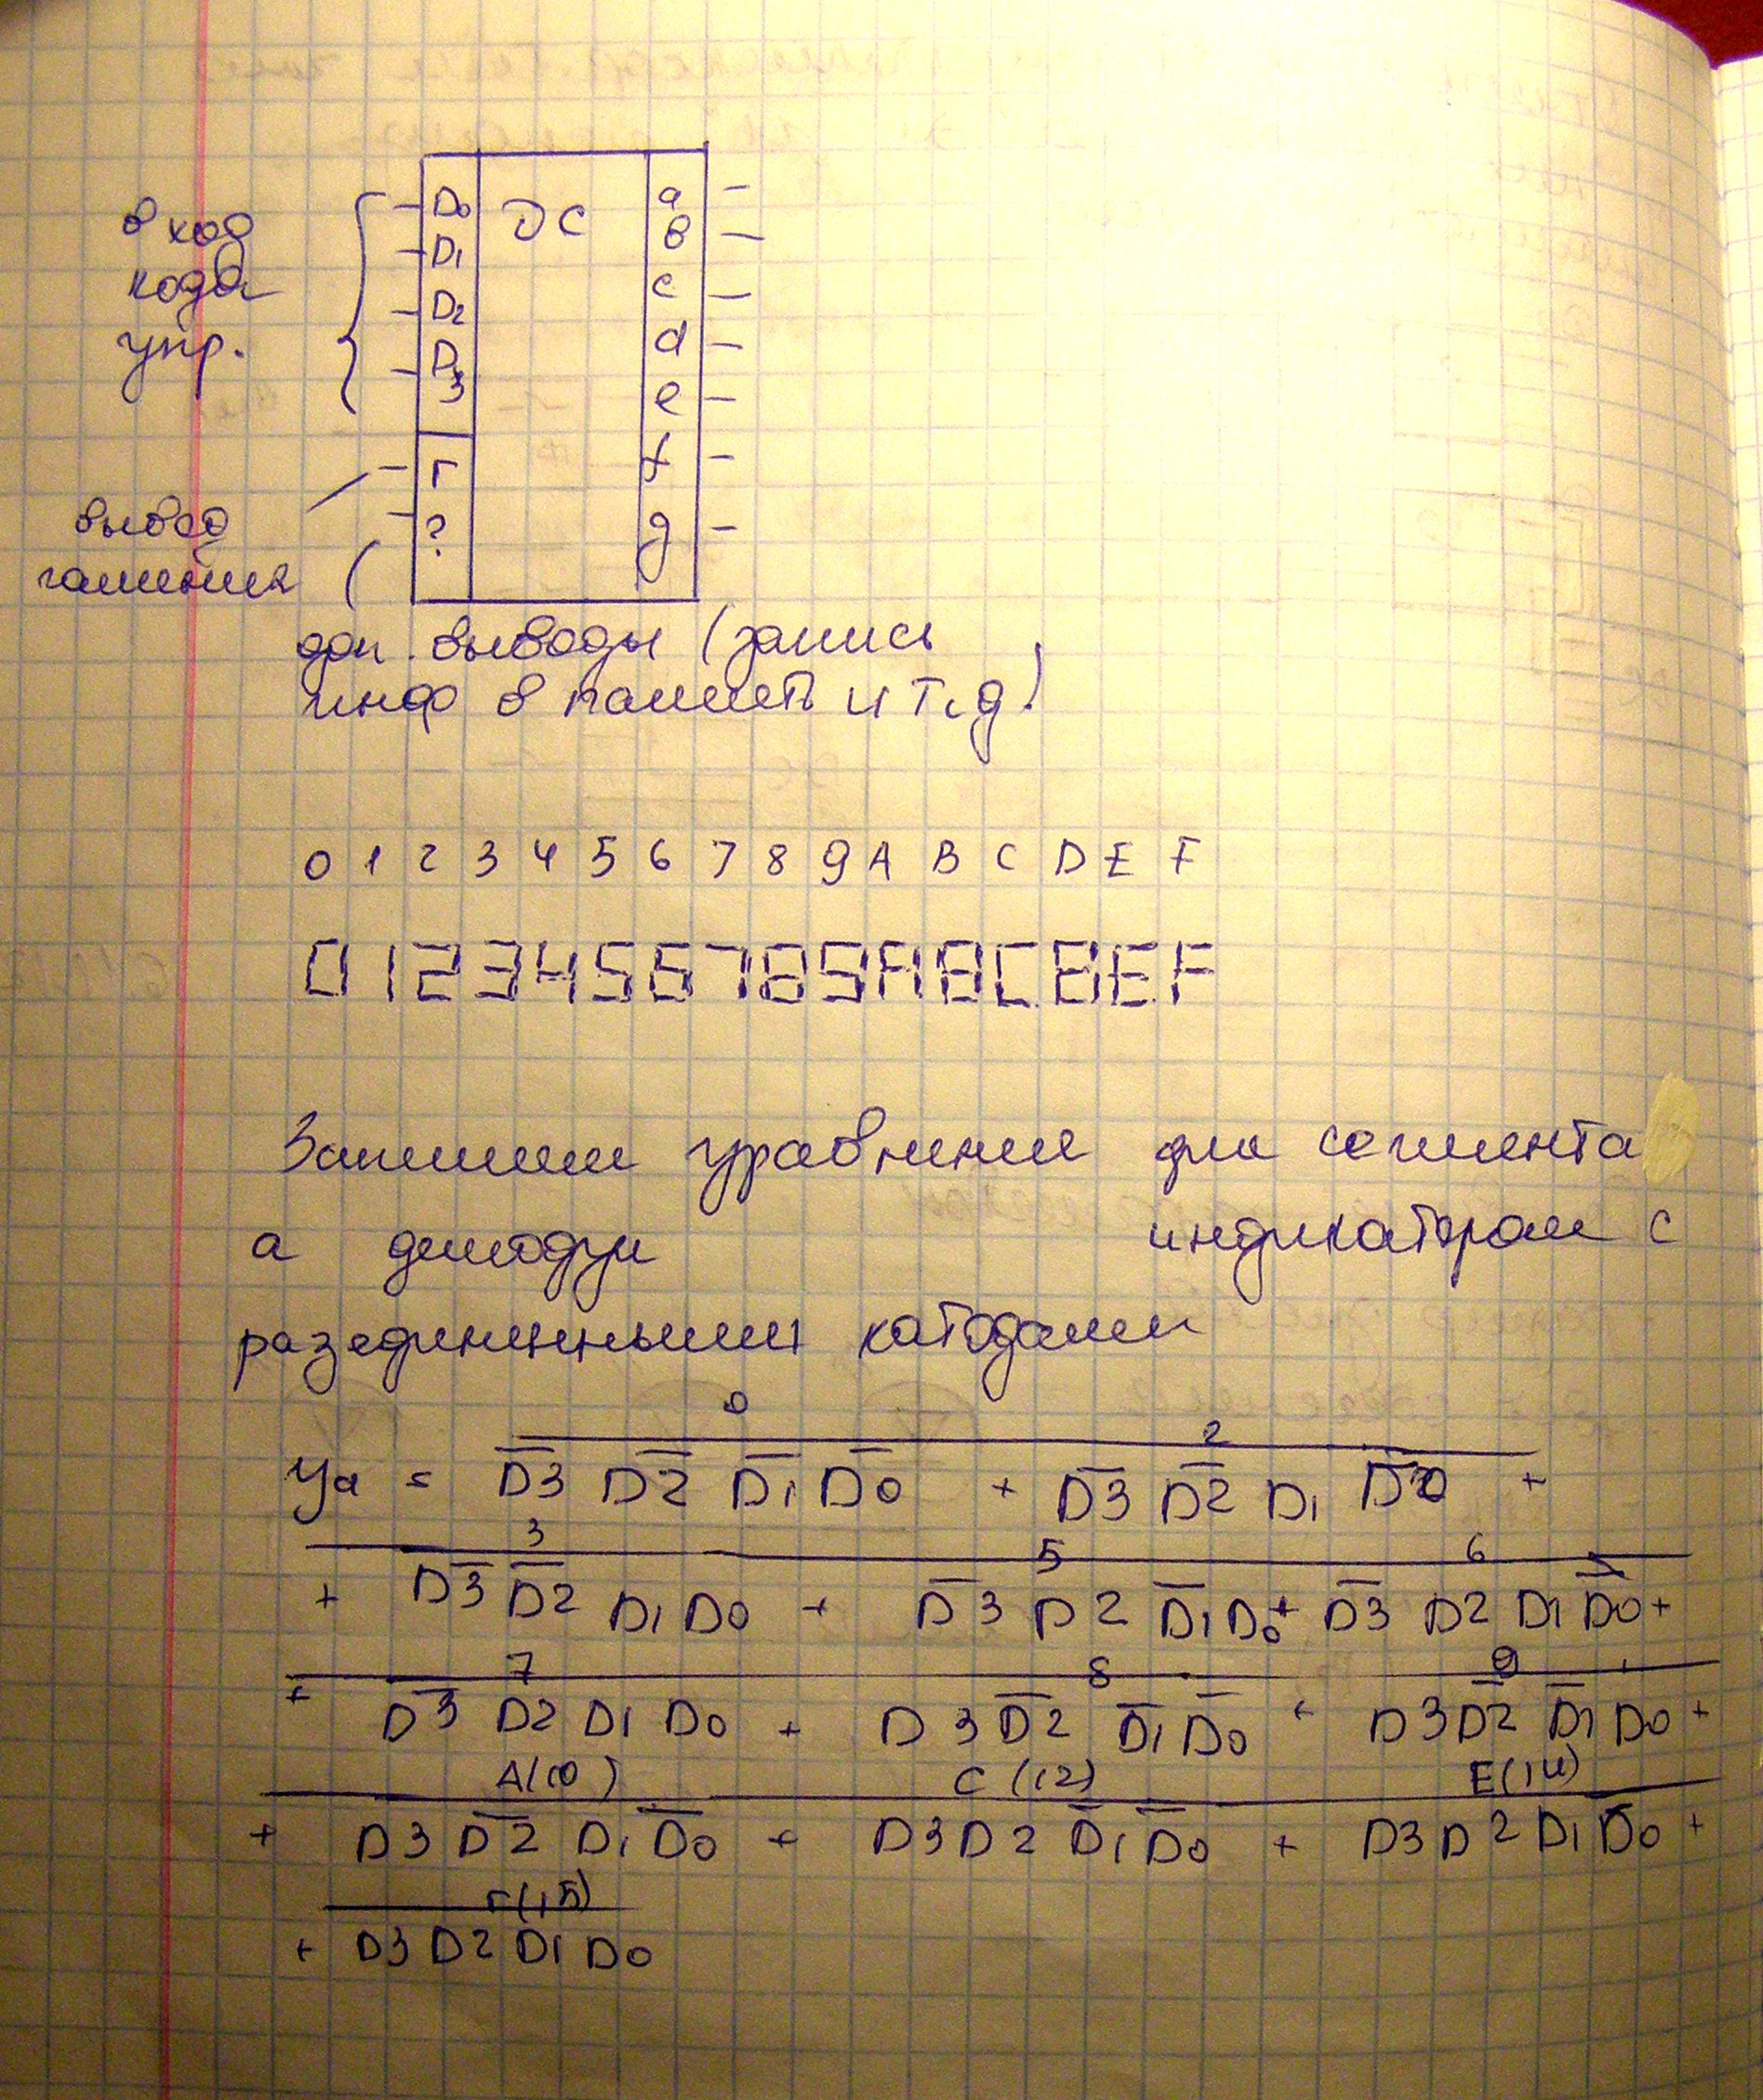 вход
кода
упр.
D0 DC a
D1 в
D2 c
D3 d
e
Г f
? g
вывод
гашения
доп. выводы (запись
инф в память и т.д)
0 1 2 3 4 5 6 7 8 9 A B C D E F
0 1 2 3 4 5 6 7 8 9 A B C D E F
Запишем уравнение для сегмента
а индикатором с
разединенными катодами
0 2
Ya = D̅3̅ D̅2̅ D̅1̅ D̅0̅ + D̅3̅ D̅2̅ D1 D̅0̅ +
3 5 6
+ D̅3̅ D̅2̅ D1 D0 + D̅3̅ D2 D̅1̅ D0 + D̅3̅ D2 D1 D̅0̅ +
7 8 9
+ D̅3̅ D2 D1 D0 + D3 D̅2̅ D̅1̅ D̅0̅ + D3 D̅2̅ D̅1̅ D0 +
A(10) C(12) E(14)
+ D3 D̅2̅ D1 D̅0̅ + D3 D2 D̅1̅ D̅0̅ + D3 D2 D1 D̅0̅ +
F(15)
+ D3 D2 D1 D0